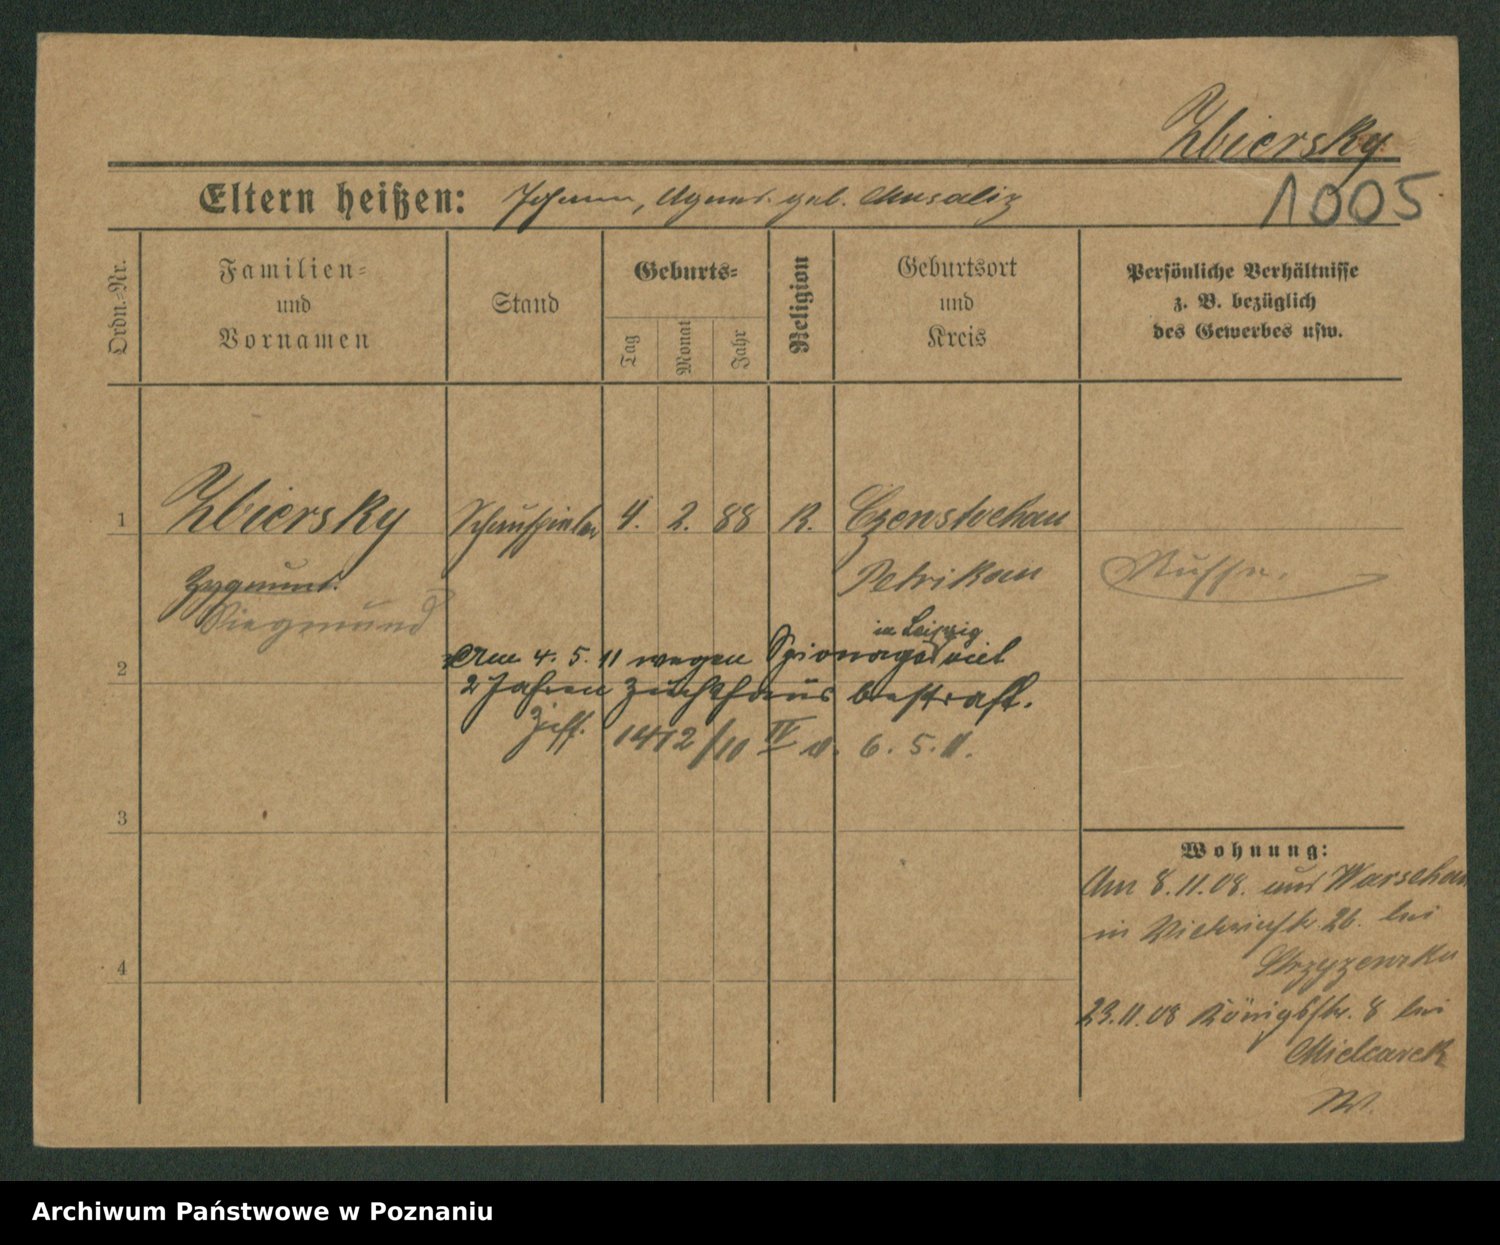 Zbiersky
1005
Eltern heißen: Johann, Agnes geb. Musaliz
Ordn.-Nr.
Familien-
und
Vornamen
Stand
Geburts-
Tag
Monat
Jahr
Religion
Geburtsort
und
Kreis
Persönliche Verhältnisse
z. B. bezüglich
des Gewerbes usw.
1
Zbiersky
Schauspieler
4. 2. 88
R.
Czenstochau
Zygmunt.
Petrikau
Russe.
Siegmund
in Leipzig
2
Am 4. 5. 11 wegen Spionage mit
2 Jahren Zuchthaus bestraft.
1412/10 IV v. 6. 5. 11.
3
Wohnung:
Am 8. 11. 08. aus Warschau
in Victoriastr. 26. bei
Strzyzewska
4
23. 11. 08 Königsstr. 8 bei
Mielcarek
Archiwum Państwowe w Poznaniu